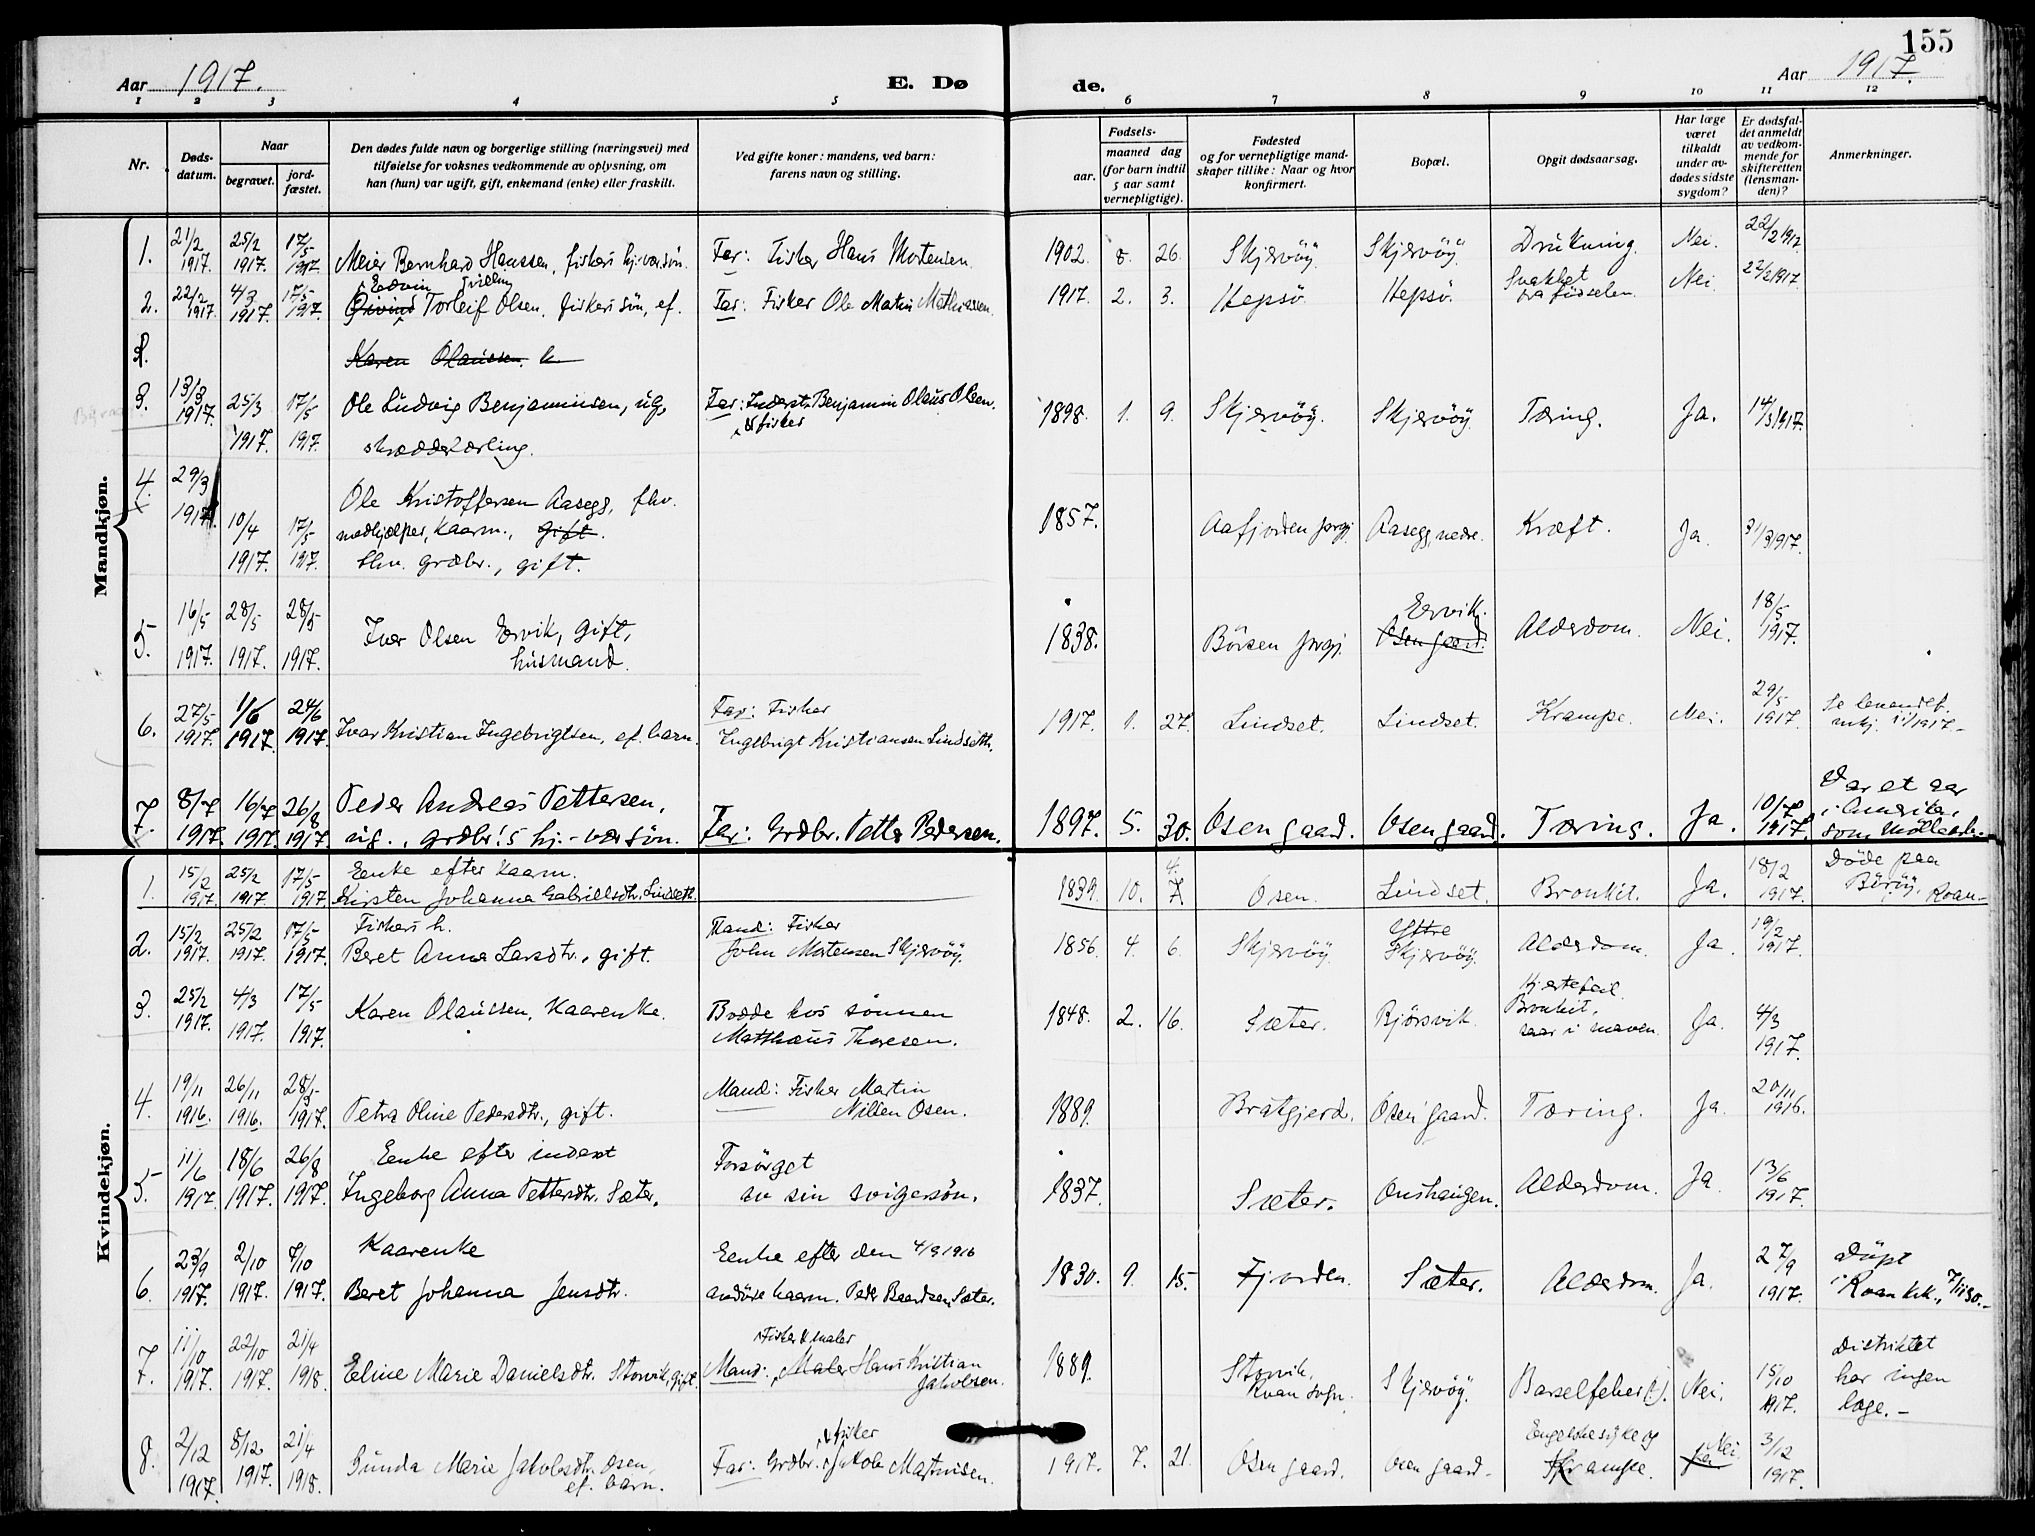 155
Aar 1917. E. Dø
de. Aar 1917.
1 2 3 4 5
6 7 8 9 10 11 12
Nr.
Døds-
datum.
Naar
begravet.
jord-
fæstet.
Den dødes fulde navn og borgerlige stilling (næringsvei) med
tilføielse for voksnes vedkommende av oplysning, om
han (hun) var ugift, gift, enkemand (enke) eller fraskilt.
Ved gifte koner: mandens, ved barn:
farens navn og stilling.
Fødsels-
aar.
maaned dag
(for barn indtil
5 aar samt
vernepligtige).
Fødested
og for vernepligtige mand-
skaper tillike: Naar og hvor
konfirmert.
Bopæl.
Opgit dødsaarsag.
Har læge
været
tilkaldt
under av-
dødes sidste
sygdom?
Er dødsfal-
det anmeldt
av vedkom-
mende for
skifteretten
(lensman-
den)?
Anmerkninger.
Mandkjøn.
1. 21/2 1917. 25/2 1917. 17/5 1917. Meier Bernhard Hanssen, fiskers hj.vær.søn. Far: Fisker Hans Mortensen 1902. 8. 26. Skjervöy. Skjervöy. Drukning. Nei. 22/2 1917.
Edvin tvilling
2. 22/2 1917. 4/3 1917. 17/5 1917. Öivind Torleif Olsen, fiskers søn, ef. Far: Fisker Ole Martin Mathiassen. 1917. 2. 3. Hepsö Hepsö. Svakhet fra fødselen. Nei. 22/2 1917.
Karen Olaussen. k
3. 13/3 1917. 25/3 1917. 17/5 1917. Ole Ludvig Benjaminsen, ug., Far: Inderst Benjamin Olaus Olsen. 1898. 1. 9. Skjervöy. Skjervöy. Tæring. Ja. 14/3 1917.
skrædderlærling. & fisker
4. 29/3 1917. 10/4 1917. 17/5 1917. Ole Kristoffersen Aasegg, fhv.
medhjælper, kaarm., gift. 1857. Aafjorden prgj. Aasegg, nedre. Kræft. Ja. 31/3 1917.
fhv. grdbr., gift.
5. 16/5 1917. 28/5 1917. 28/5 1917. Iver Olsen Ervik, gift,
husmand. 1838. Börsen prgj. Ervik. Osen gaard. Alderdom. Nei. 18/5 1917.
6. 27/5 1917. 1/6 1917. 24/6 1917. Ivar Kristian Ingebrigtsen, ef. barn. Far: Fisker
Ingebrigt Kristiansen Lindseth. 1917. 1. 27. Lindset. Lindset. Krampe. Nei. 29/5 1917. Se
7. 8/7 1917. 16/7 1917. 26/8 1917. Peder Andreas Pettersen,
ug., grdbr.'s hj.-vær søn. Far: Grdbr. Petter Pedersen. 1897. 5. 30. Osen gaard. Osen gaard. Tæring. Ja. 10/7 1917. Var et aar
i Amerika,
som
Kvindekjøn.
1. 15/2 1917. 25/2 1917. 17/5 1917. Enke efter kaarm.
Kirsten Johanna Gabrielsdtr. Lindseth. 1839. 10. 4. 7 Osen. Lindset. Bronkit. Ja. 18/2 1917. Döde paa
Böröy, Roan.
2. 15/2 1917. 25/2 1917. 17/5 1917. Fiskers h.
Beret Anna Larsdtr., gift. Mand: Fisker
John Mortensen Skjervöy. 1856. 4. 6. Skjervöy. Yttre Skjervöy. Alderdom. Ja. 19/2 1917.
3. 25/2 1917. 4/3 1917. 17/5 1917. Karen Olaussen, kaarenke. Bodde hos sønnen
Matthæus Thoresen. 1848. 2. 16. Sæter. Bjørsvik. Hjertefeil.
Bronkit,
saar i maven. Ja. 4/3 1917.
4. 19/11 1916. 26/11 1916. 28/5 1917. Petra Oline Pedersdtr., gift. Mand: Fisker Martin
Nilsen Osen. 1889. Bratgjerd. Osen gaard. Tæring. Ja. 20/11 1916.
5. 11/6 1917. 18/6 1917. 26/8 1917. Enke efter inderst
Ingeborg Anna Pettersdtr. Sæter. Forsörget
av sin svigersøn. 1837. Sæter. Onshaugen. Alderdom. Ja. 13/6 1917.
6. 23/9 1917. 2/10 1917. 7/10 1917. Kaarenke
Beret Johanna Jensdtr. Enke efter den 4/9 1916
avdöde kaarm. Peder Baardsen Sæter. 1830. 9. 15. Fjorden. Sæter. Alderdom. Ja. 27/9 1917. Döpt
i Roan kk., 7/11 30.-
7. 11/10 1917. 22/10 1917. 21/4 1918. Eline Marie Danielsdtr. Storvik, gift. Fisker & maler
Mand: Maler Hans Kristian
Jakobsen. 1889. Storvik,
Roan sogn. Skjervöy. Barselfeber (?). Nei. 15/10 1917. Distriktet
har ingen
læge.-
8. 2/12 1917. 8/12 1917. 21/4 1918. Gunda Marie Jakobsdtr. Osen,
ef. barn. & fisker
Far: Grdbr. Jakob Martinsen. 1917. 7. 21. Osen gaard. Osen gaard. Engelskesyke og
Krampe. Nei. Ja 3/12 1917.